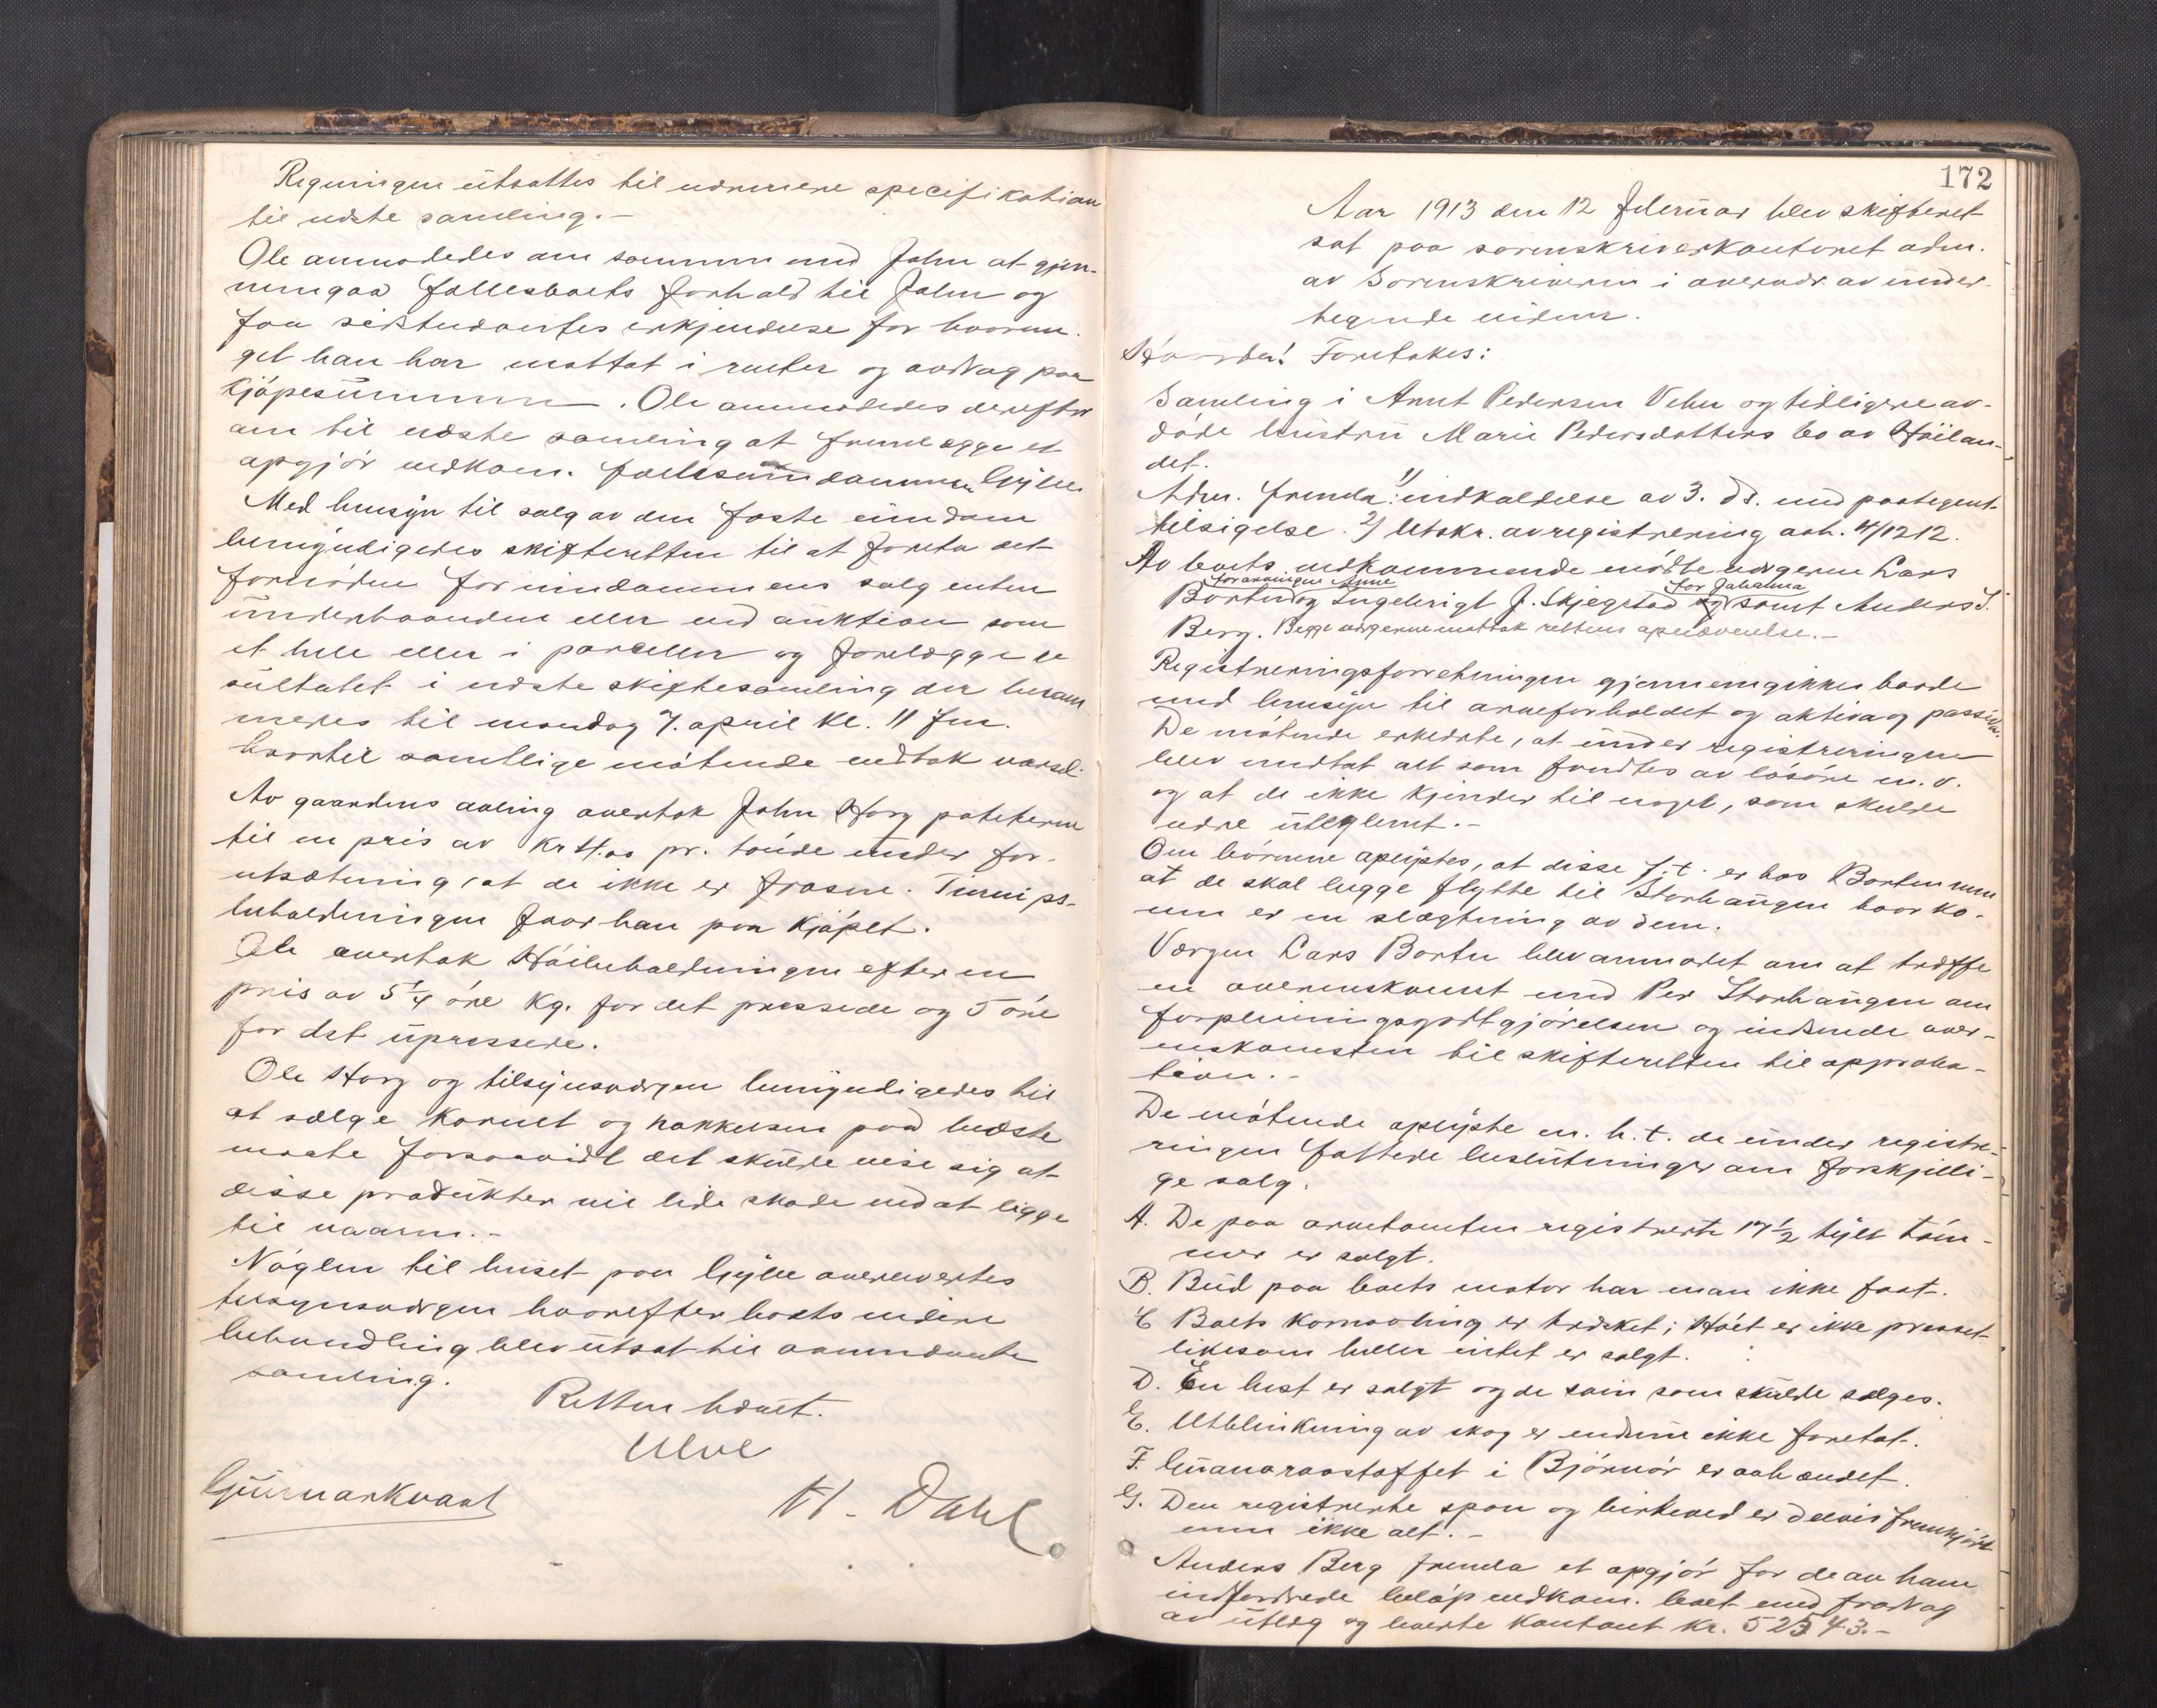 Regningen utsattes til nærmere specifikation
til næste samling.-
Ole anmodedes om sammen med John at gjen-
nemgaa fællesboets forhold til John og
faa sidstnævntes erkjendelse for hvorme-
get han har mottat i renter og avdrag paa
kjøpesummen. Ole anmodedes derefter
om til næste samling at fremlægge et
opgjør vedkom. fælleseiendommen Gylle
Med hensyn til salg av den faste eiendom
bemyndigedes skifteretten til at foreta det
fornødne for eiendommens salg enten
underhaanden eller ved auktion som
et hele eller i parceller og forelægge re
sultatet i næste skiftesamling der beram-
meres til mandag 7. april kl. 11 fm.
hvortil samtlige møtende vedtok varsel.
Av gaardens avling overtok John Horg poteterne
til en pris av kr 4.00 pr. tønde under for-
utsætning, at de ikke er frosne. Turnips-
beholdningen faar han paa kjøpet.
Ole overtok Høibeholdningen efter en
pris av 5 1/4 øre kg. for det pressede og 5 øre
for det upressede.
Ole Horg og tilsynsværgen bemyndigedes til
at sælge kornet og hakkelsen paa bedste
maate forsaavidt det skulde vise sig at
disse produkter vil lide skade ved at ligge
til vaaren.-
Nøglen til huset paa Gylle overleveres
tilsynsværgen hvorefter boets videre
behandling blev utsat til ovennævnte
samling.
Retten hævet.
Ulve
Gunnar Kvaal
H. Dahl
172
Aar 1913 den 12 februar blev skifteret
sat paa sorenskriverkontoret adm.
av Sorenskriveren i overvær av under-
tegnede vidner.
Foretokes:
Samling i Arnt Pedersen Vehn og tidligere av-
døde hustru Marie Pedersdatters bo av Høilan-
det.
Adm. fremla: 1) indkaldelse av 3. ds. med paategnet
tilsigelse. 2) Utskr. av registrering avh. 4/12 12.
Av boets vedkommende møtte værgerne Lars
for Anne
for Johanna
Børten og Ingebrigt J. Skjegstad og samt Anders J.
Berg. Begge værgerne mottok rettens opnævnelse.-
Registreringsforretningen gjennemgikkes baade
med hensyn til arveforholdet og aktiva og passiva.
De møtende erklærte, at under registreringen
blev medtat alt som fandtes av løsøre m. v.
og at de ikke kjender til noget, som skulde
være utglemt.-
Om børnene oplystes, at disse f. t. er hos Børten men
at de skal begge flytte til Storhaugen hvor ko-
nen er en slægtning av dem.
Værgen Lars Børten blev anmodet om at træffe
en overenskomst med Per Storhaugen om
forpleiningsgodtgjørelsen og indsende over-
enskomsten til skifteretten til approba-
tion.-
De møtende oplyste m. h. t. de under registre-
ringen fattede beslutninger om forskjelli-
ge salg.
A. De paa arvetomten registrerte 17 1/2 tylt tøm-
mer er solgt.
B. Bud paa boets motor har man ikke faat.
C Boets kornavling er træsket; Høiet er ikke presset
likesom heller intet er solgt.
D. En hest er solgt og de svin som skulde sælges.
E. Utblinkning av skog er endnu ikke foretat.
F. Guanoraastoffet i Bjørnør er avhændet.
G. Den registrerte spon og birkeved er delvis fremkjørt
men ikke alt.-
Anders Berg fremla et opgjør for de av ham
indfordrede beløp vedkom. boet med fradrag
av utlæg og leverte kontant kr. 525 43.-